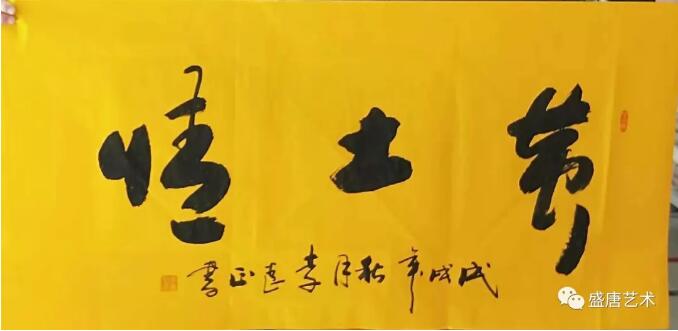 土情
戊戌年秋月李正書
盛唐艺术